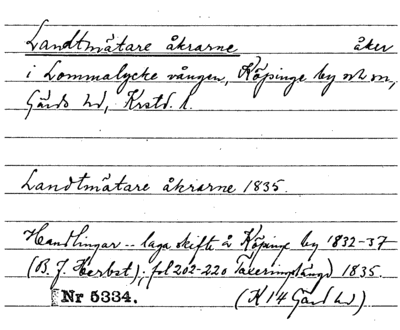 Landtmätare åkrarne åker
i Lommalycke vången, Köpinge by och sn,
Gärds hd, Krstd. l.
Landtmätare åkrarne 1835.
Handlingar -- laga skifte å Köpinge by 1832-37
(B. J. Herbst); fol 202-220 Taxeringslängd 1835.
Nr 5334. (K 14 Gärd hd)